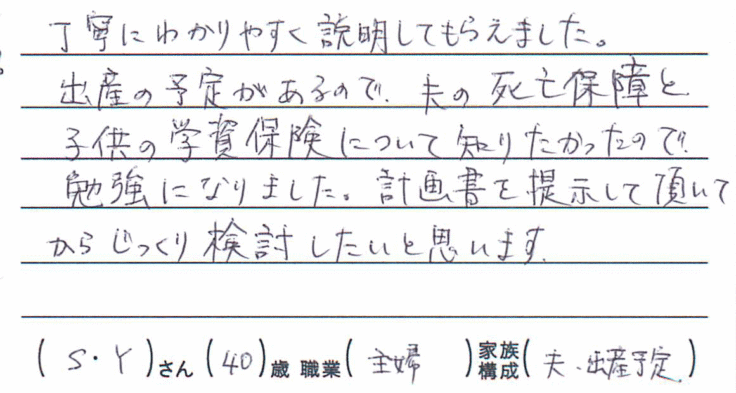 丁寧にわかりやすく説明してもらえました。
出産の予定があるので、夫の死亡保障と
子供の学資保険について知りたかったので
勉強になりました。計画書を提示して頂いて
からじっくり検討したいと思います。
(S・Y)さん(40)歳 職業(主婦)家族構成(夫・出産予定)